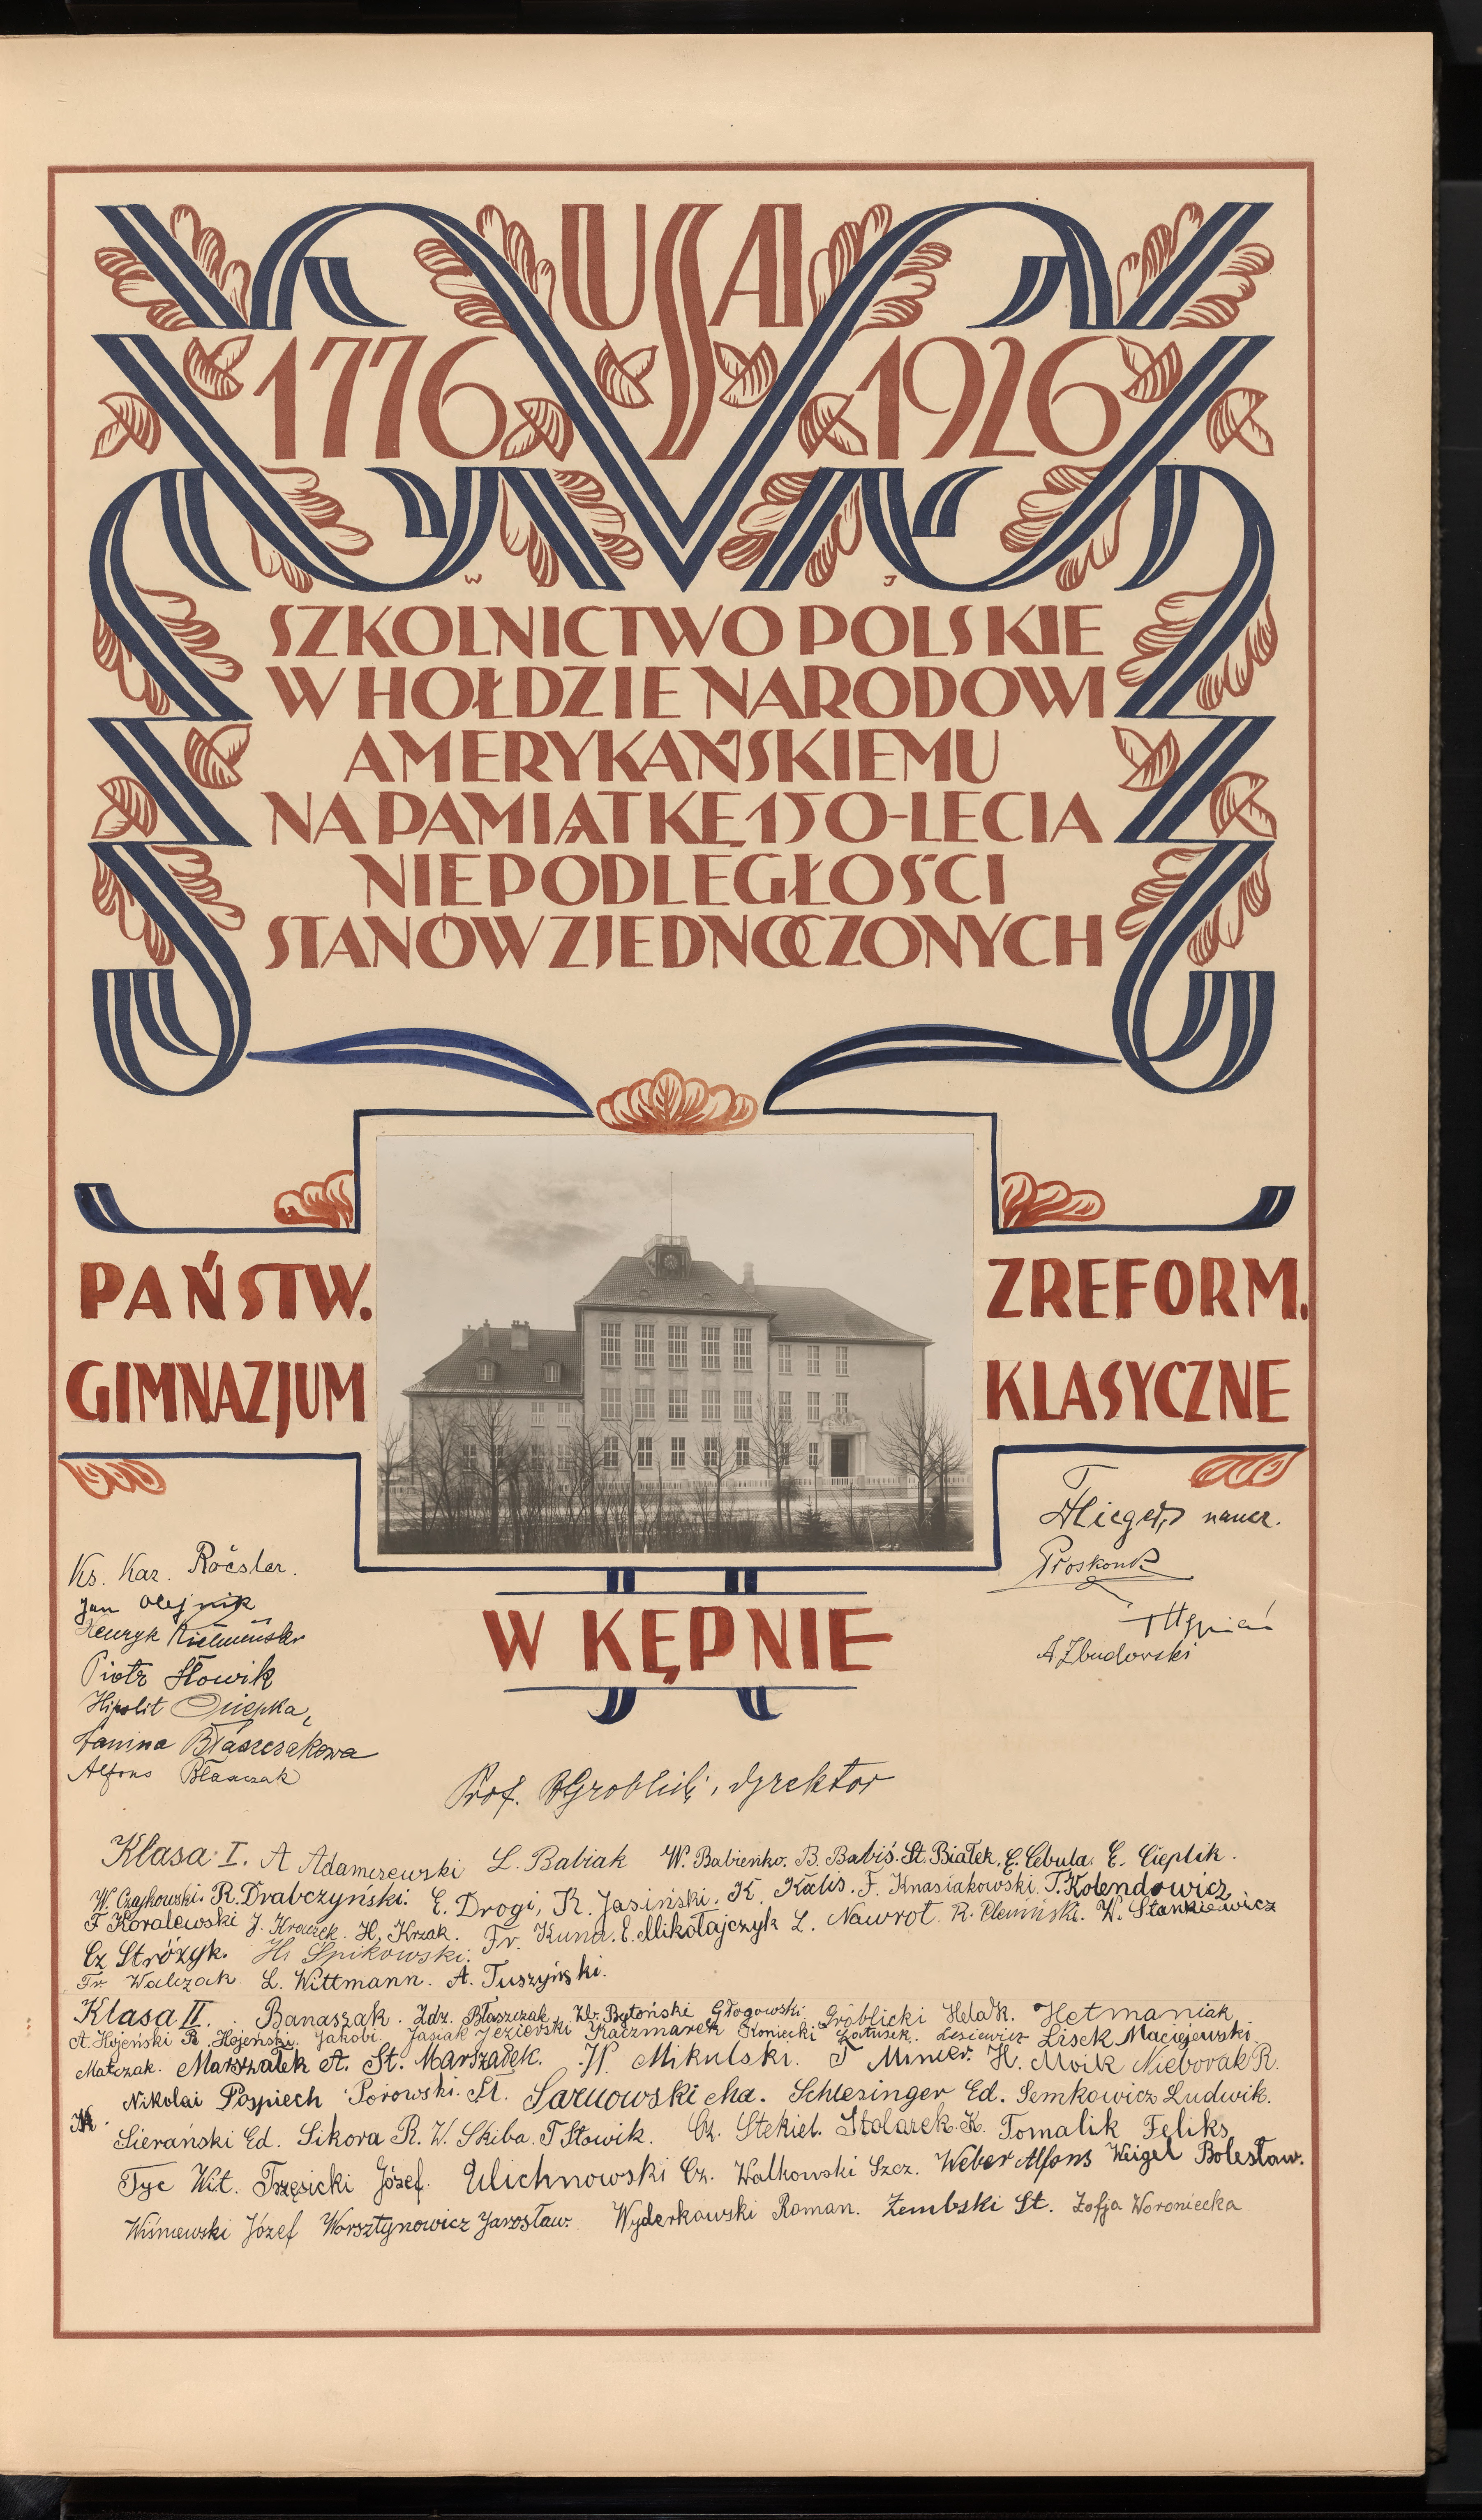 USA
1776 1926
W J
SZKOLNICTWO POLSKIE
W HOŁDZIE NARODOWI
AMERYKAŃSKIEMU
NA PAMIĄTKĘ 150-LECIA
NIEPODLEGŁOŚCI
STANÓW ZJEDNOCZONYCH
PAŃSTW.
GIMNAZJUM
ZREFORM.
KLASYCZNE
W KĘPNIE
Ks. Kaz.
Jan Olejnik
Henryk
Piotr Słowik
Hipolit
Janina Błaszczakowa
Alfons
naucz.
A Zbudowski
Prof. dyrektor
Klasa I. A Adamczewski L. Babiak W. Babieńko. B. Babiś. St. Białek. E. Cebula. E. Cieplik.
W. Czajkowski. R. Drabczyński. E. Drogi, K. Jasiński. K. Kalis. F. Knasiakowski. T. Kolendowicz
F Koralewski J. H. Krzak. Fr. E. Mikołajczyk L. Nawrot. R. W. Stankiewicz
Cz. Stróżyk. H. Spikowski.
Fr. Walczak. L. Wittmann. A. Tuszyński.
Klasa II. Banaszak. Zdz. Błaszczak, Głogowski Gróblicki Helak. Hetmaniak
A. Hojeński R. Hojeński. Jakobi. Jasiak Jezierski Kaczmarek Koniecki Lesiewicz Lisek Maciejewski.
Matczak. Marszałek A. St. Marszałek. W. Mikulski. H. Moik Nieborak R.
Nikolai Pospiech Porowski. St. Sarnowski Ma. Schlesinger Ed. Semkowicz Ludwik.
Sierański Ed. Sikora R. W. Skiba. T Słowik. Cz. Stekiel. Stolarek. K. Tomalik Feliks
Tyc Wit. Trzęsicki Józef. Ulichnowski Cz. Walkowski Szcz. Weber Alfons Weigel Bolesław.
Wiśniewski Józef Worsztynowicz Jarosław. Wyderkowski Roman. Zembski St. Zofja Woroniecka